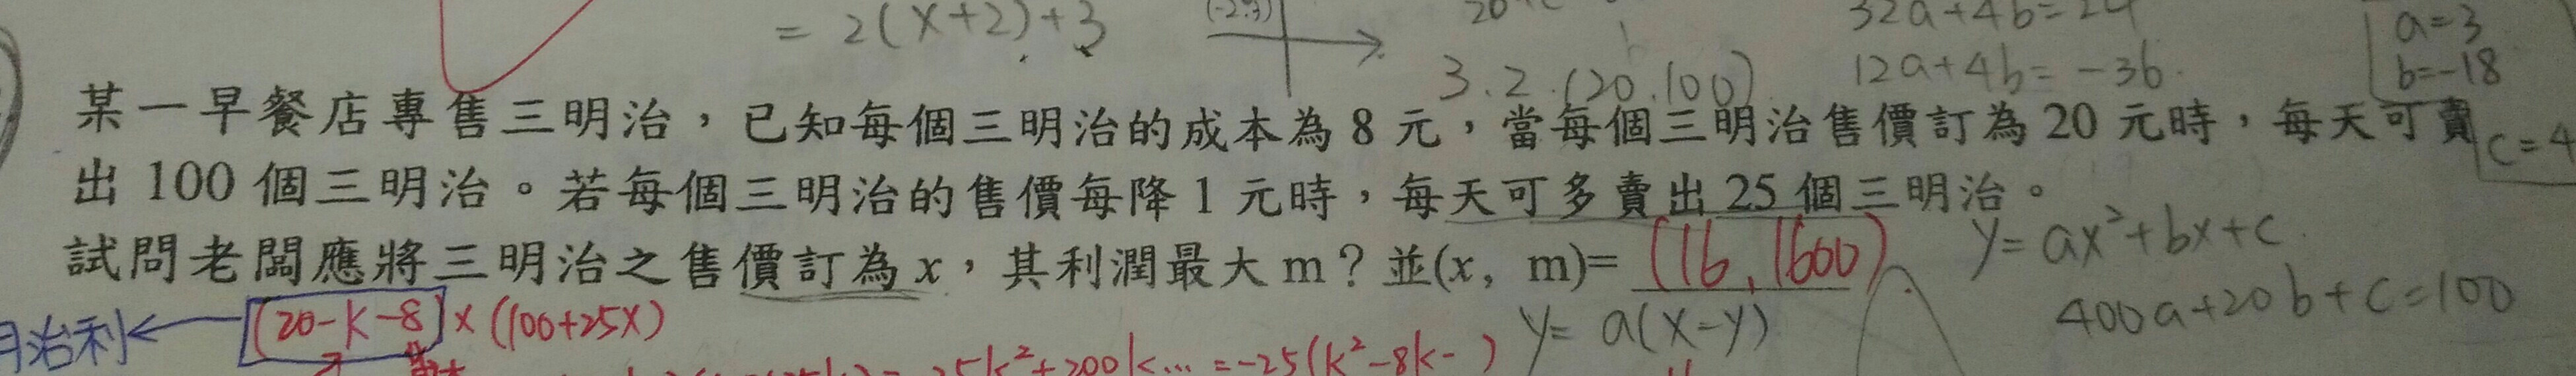 = 2(x+2)+3
(-2.3)
32a+4b=24
12a+4b=-36
a=3
b=-18
c=4
3.2.(20.100)
某一早餐店專售三明治，已知每個三明治的成本為 8 元，當每個三明治售價訂為 20 元時，每天可賣
出 100 個三明治。若每個三明治的售價每降 1 元時，每天可多賣出 25 個三明治。
試問老闆應將三明治之售價訂為 x，其利潤最大 m？並(x, m)= (16, 1600)
y=ax²+bx+c
400a+20b+c=100
y= a(x-y)
治利←(20-k-8)×(100+25x)
25k²+200k… =-25(k²-8k- )